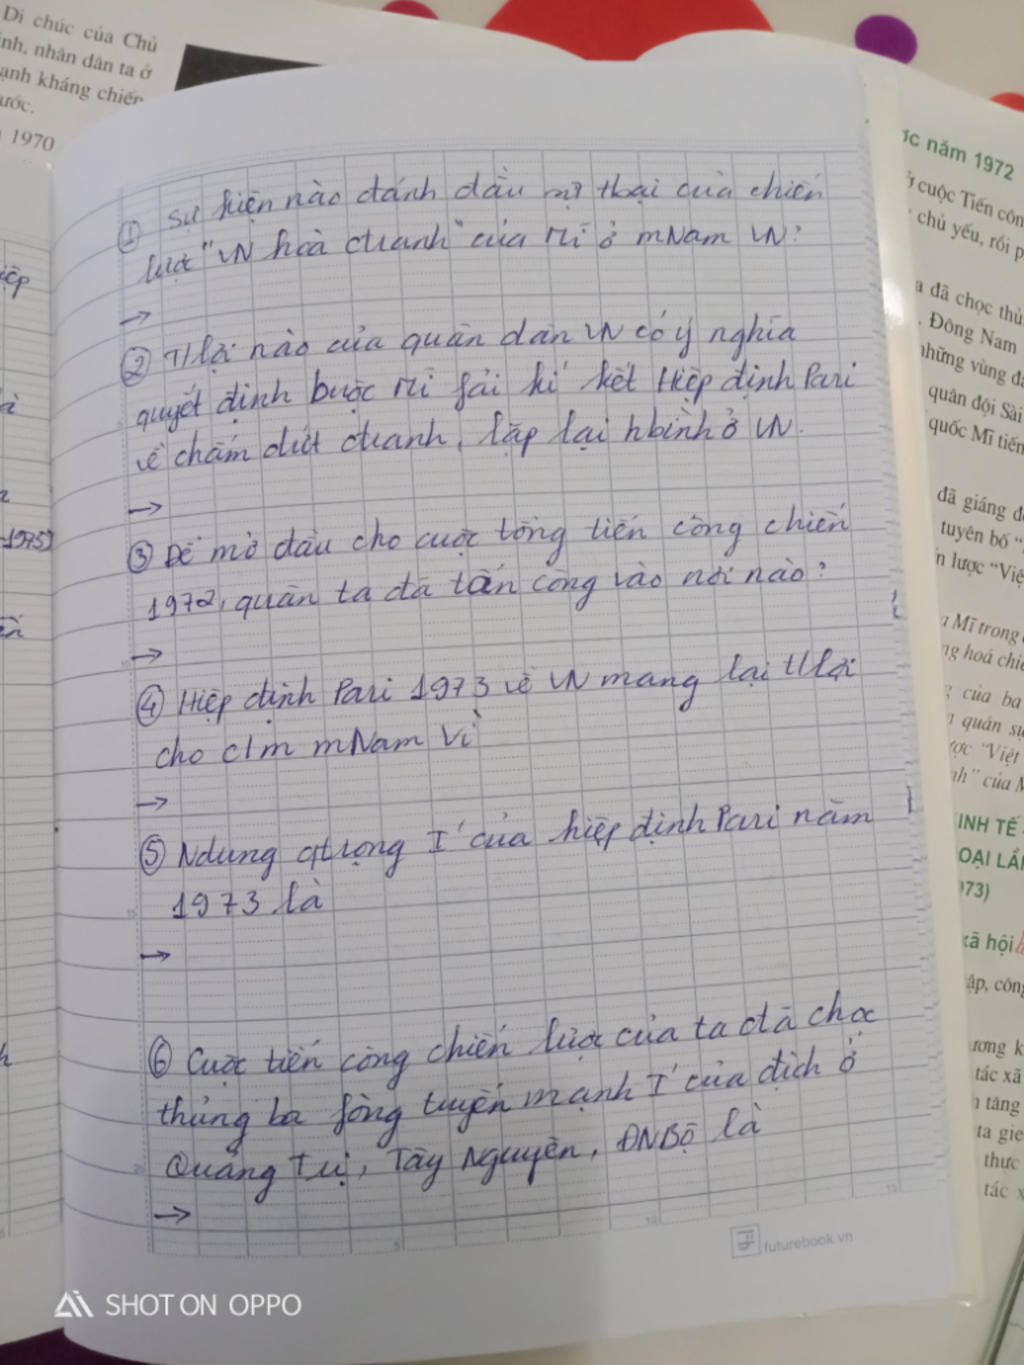 Di chúc của Chủ
inh, nhân dân ta ở
ạnh kháng chiến
ước.
1970
iệp
1975)
① Sự kiện nào đánh dấu sự thại của chiến
lược "VN hoà ctranh" của Mĩ ở mNam VN?
→
② Tlợi nào của quân dân VN có ý nghĩa
quyết định buộc Mĩ fải kí kết Hiệp định Pari
về chấm dứt ctranh, lặp lại hbình ở VN.
→
③ Để mở đầu cho cuộc tổng tiến công chiến
1972, quân ta đã tấn công vào nơi nào?
→
④ Hiệp định Pari 1973 về VN mang lại tlợi
cho c/m mNam vì
→
⑤ Ndung qtrọng I' của hiệp định Pari năm
1973 là
→
⑥ Cuộc tiến công chiến lược của ta đã chọc
thủng ba fòng tuyến mạnh I' của địch ở
Quảng Trị, Tây Nguyên, ĐNBộ là
→
futurebook.vn
ợc năm 1972
ở cuộc Tiến côn
chủ yếu, rồi p
a đã chọc thủ
Đông Nam
những vùng đ
quân đội Sài
quốc Mĩ tiến
đã giáng đ
tuyên bố "
n lược "Việ
a Mĩ trong
ng hoá chi
của ba
n quân sự
ợc "Việt
nh" của M
KINH TẾ
OẠI LẦ
73)
xã hội
ập, công
ương k
tác xã
n tăng
ta gie
thực
tác x
SHOT ON OPPO